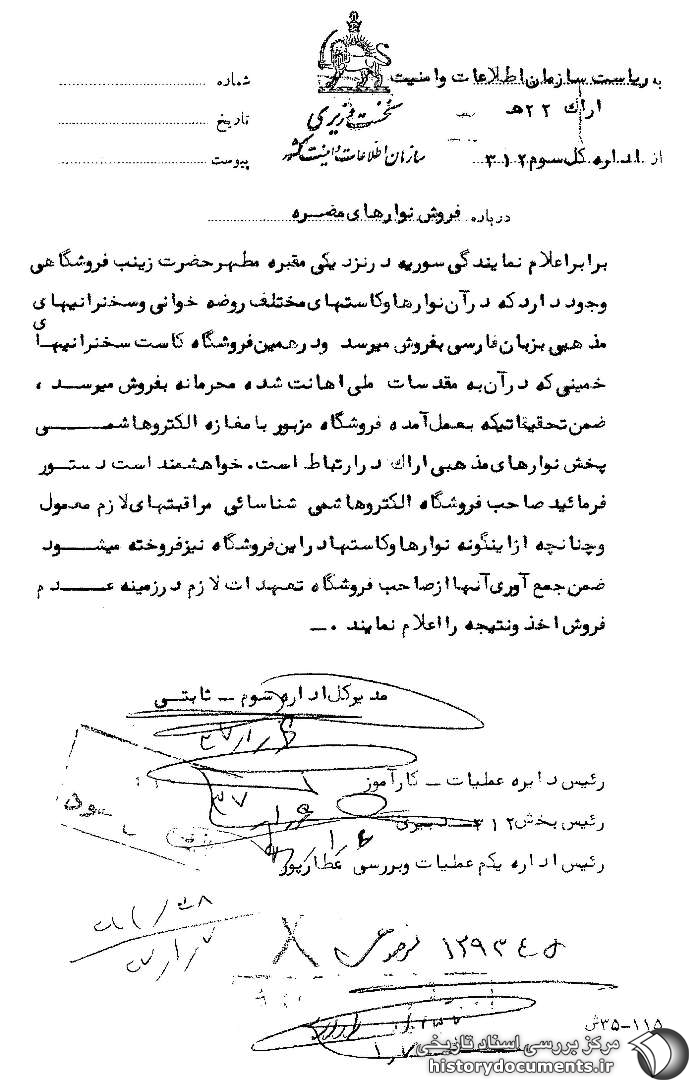 به ریاست سازمان اطلاعات و امنیت
اراک ۲۲ هـ
از اداره کل سوم ۳۱۲
نخست وزیری
سازمان اطلاعات و امنیت کشور
شماره
تاریخ
پیوست
درباره فروش نوارهای مضره
برابر اعلام نمایندگی سوریه در نزدیکی مقبره مطهر حضرت زینب فروشگاهی
وجود دارد که در آن نوارها و کاستهای مختلف روضه خوانی و سخنرانیهای
مذهبی بزبان فارسی بفروش میرسد و در همین فروشگاه کاست سخنرانیهای
خمینی که در آن به مقدسات ملی اهانت شده محرمانه بفروش میرسد ،
ضمن تحقیقاتیکه بعمل آمده فروشگاه مزبور با مغازه الکتروهاشمی
پخش نوارهای مذهبی اراک در ارتباط است. خواهشمند است دستور
فرمائید صاحب فروشگاه الکتروهاشمی شناسائی مراقبتهای لازم معمول
و چنانچه از اینگونه نوارها و کاستها در این فروشگاه نیز فروخته میشود
ضمن جمع آوری آنها از صاحب فروشگاه تعهدات لازم در زمینه عدم
فروش اخذ و نتیجه را اعلام نمایند .ــ
مدیر کل اداره سوم ــ ثابتی
رئیس دایره عملیات ــ کارآموز
رئیس بخش ۳۱۲
رئیس اداره یکم عملیات و بررسی عطارپور
۳۵-۱۱۵ش
مرکز بررسی اسناد تاریخی
historydocuments.ir